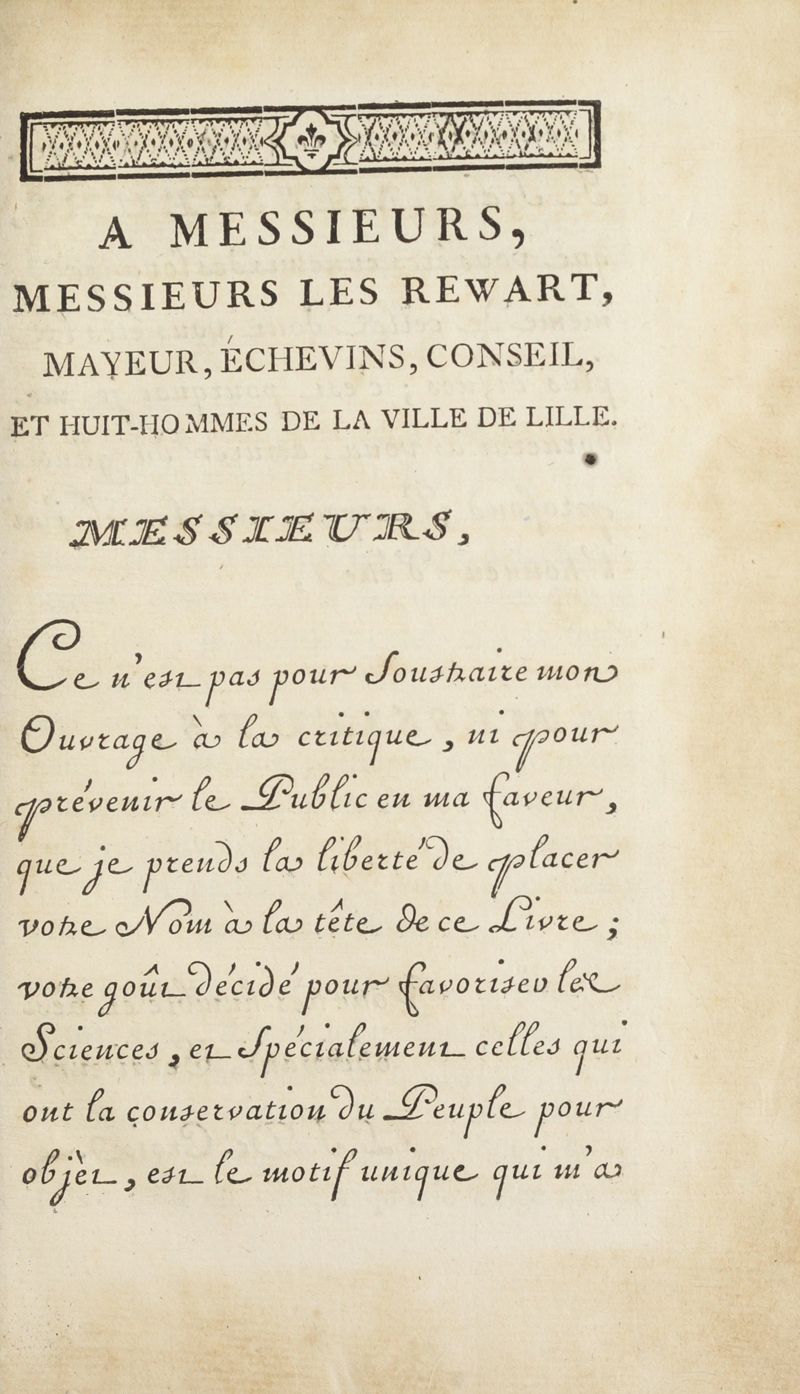 A MESSIEURS,
MESSIEURS LES REWART,
MAYEUR, ÉCHEVINS, CONSEIL,
ET HUIT-HOMMES DE LA VILLE DE LILLE.
MESSIEURS,
Ce n'est pas pour soustraire mon
Ouvrage à la critique, ni pour
prévenir le Public en ma faveur,
que je prends la liberté de placer
votre Nom à la tête de ce Livre ;
votre goût décidé pour favoriser les
Sciences, et spécialement celles qui
ont la conservation du Peuple pour
objèt, est le motif unique qui m'a